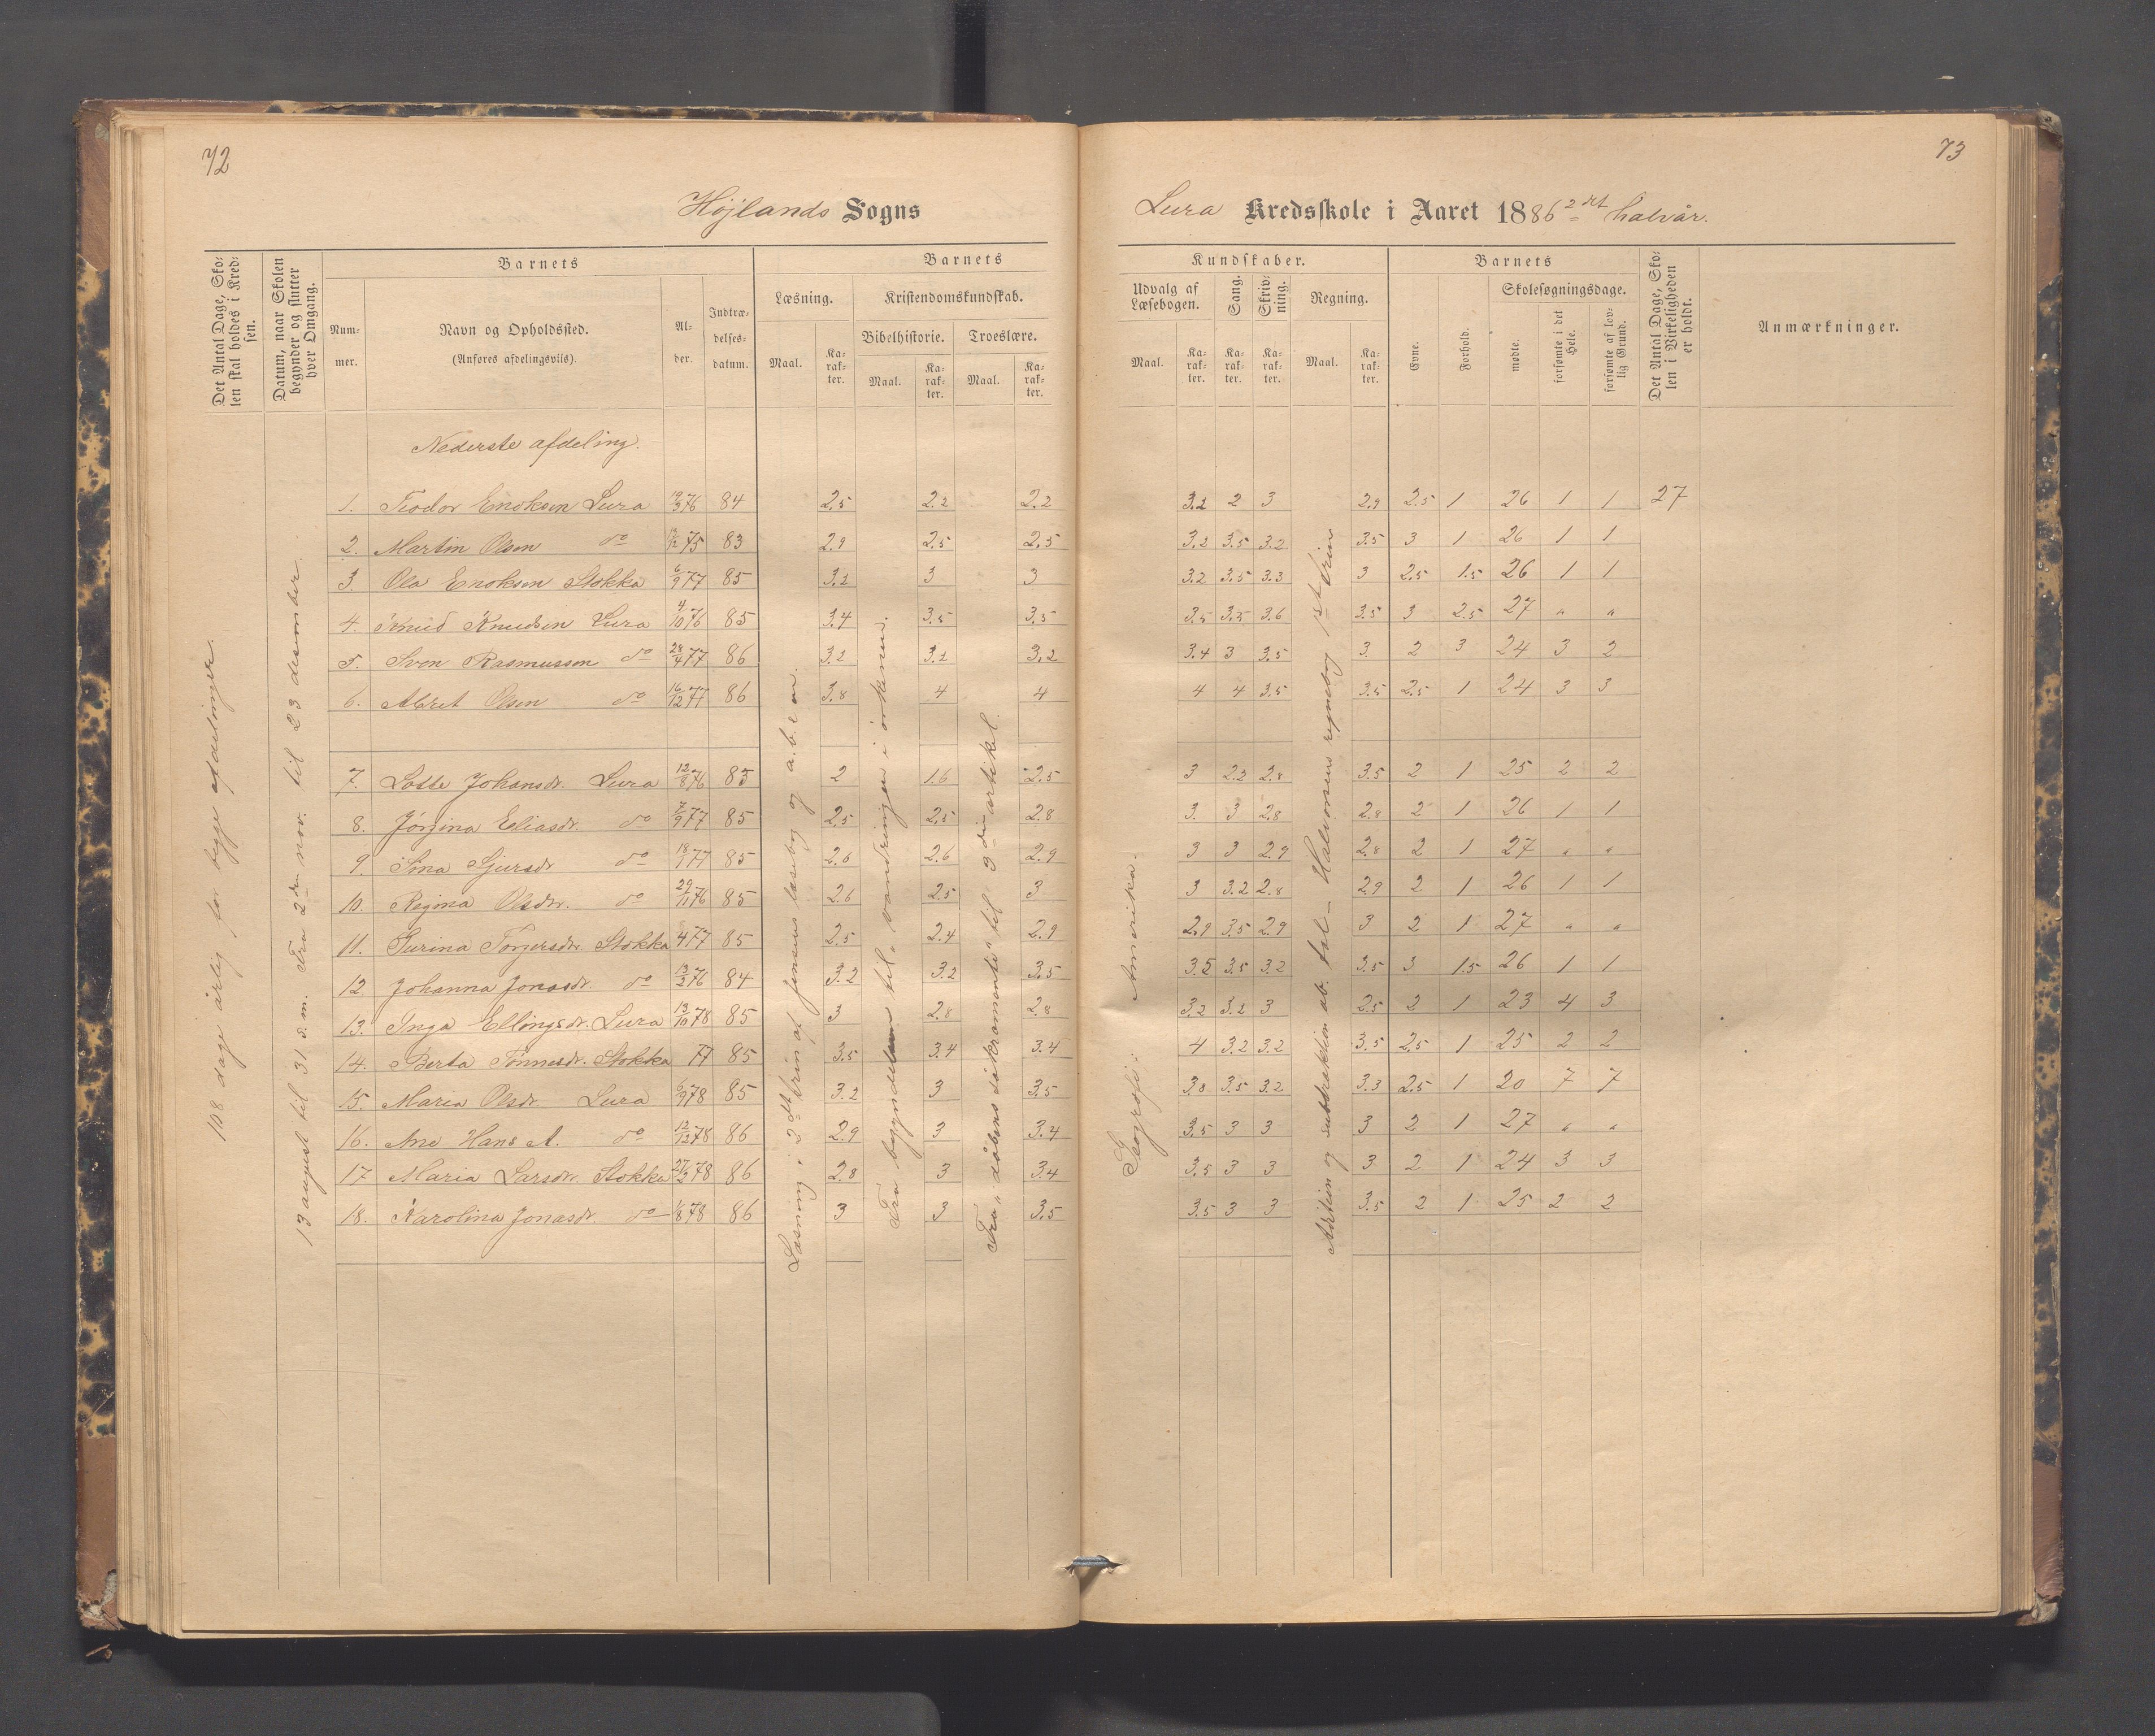 72
Højlands Sogns
Det Antal Dage, Skolen skal holdes i Kredsen.
Datum, naar Skolen begynder og slutter hver Omgang.
Barnets
Nummer.
Navn og Opholdssted.
(Anføres afdelingsviis).
Alder.
Indtrædelsesdatum.
Barnets
Læsning.
Maal.
Karakter.
Kristendomskundskab.
Bibelhistorie.
Maal.
Karakter.
Troeslære.
Maal.
Karakter.
108 dage årlig for begge afdelinger.
13 august til 31 s. m. Fra 2den nov. til 23 desember.
Læsning i 2det trin af Jensens læsebog og a.b.c.en.
Fra begyndelsen til „vandringen i ørkenen.
Fra „dåbens sakramente" til 3die artikel.
Nederste afdeling.
1. Teodor Enoksen Lura 19/3 76 84 2.5 2.2 2.2
2. Martin Olsen do 75 83 2.9 2.5 2.5
3. Ola Enoksen Stokka 6/9 77 85 3.2 3 3
4. Knud Knudsen Lura 4/10 76 85 3.4 3.5 3.5
5. Sven Rasmussen do 28/4 77 86 3.2 3.2 3.2
6. Abret Olsen do 16/12 77 86 3.8 4 4
7. Lotte Johansdr. Lura 12/8 76 83 2 1.6 2.5
8. Jørgina Eliasdr. do 7/9 77 85 2.5 2.5 2.8
9. Sina Sjursdr do 18/1 77 85 2.6 2.6 2.9
10. Regina Olsdtr. do 29/11 76 85 2.6 2.5 3
11. Surina Torgersdr. Stokka 77 85 2.5 2.4 2.9
12 Johanna Jonasdr. do 13/2 76 84 3.2 3.2 3.5
13. Inga Ellingsdr. Lura 13/10 78 85 3 2.8 2.8
14. Berta Tønnesdr. Stokka 77 85 3.5 3.4 3.4
15. Maria Olsdr. Lura 6/9 78 85 3.2 3 3.5
16. Ane Hans A. do 12/12 78 86 2.9 3 3.4
17 Maria Larsdr. Stokka 27/2 78 86 2.8 3 3.4
18. Karolina Jonasdr. do 1/8 78 86 3 3 3.5
73
Lura Kredsskole i Aaret 1886 2det halvår.
Kundskaber.
Udvalg af Læsebogen.
Maal.
Karakter.
Sang.
Karakter.
Skrivning.
Karakter.
Regning.
Maal.
Karakter.
Barnets
Evne.
Forhold.
Skolesøgningsdage.
mødte.
forsømte i det Hele.
forsømte af lovlig Grund.
Det Antal Dage, Skolen i Virkeligheden er holdt.
Anmærkninger.
Geografi: Amerika.
Adition og subtraktion ab. tal – Halvorsens regnebog 1ste trin
3.2 2 3 2.9 2.5 1 26 1 1 27
3.2 3.5 3.2 3.5 3 1 26 1 1
3.2 3.5 3.3 3 2.5 1.5 26 1 1
3.5 3.5 3.6 3.5 3 2.5 27 " "
3.4 3 3.5 3 2 3 24 3 2
4 4 3.5 3.5 2.5 1 24 3 3
3 2.2 2.8 3.5 2 1 25 2 2
3. 3 2.8 2.8 2 1 26 1 1
3 3 2.9 2.8 2 1 27 " "
3 3.2 2.8 2.9 2 1 26 1 1
2.9 3.5 2.9 3 2 1 27 " "
3.5 3.5 3.2 3.5 3 1.5 26 1 1
3.2 3.2 3 2.5 2 1 23 4 3
4 3.2 3.2 3.5 2.5 1 25 2 2
3.8 3.5 3.2 3.3 2.5 1 20 7 7
3.5 3 3 3 2 1 27 " "
3.5 3 3 3 2 1 24 3 3
3.5 3 3 3.5 2 1 25 2 2